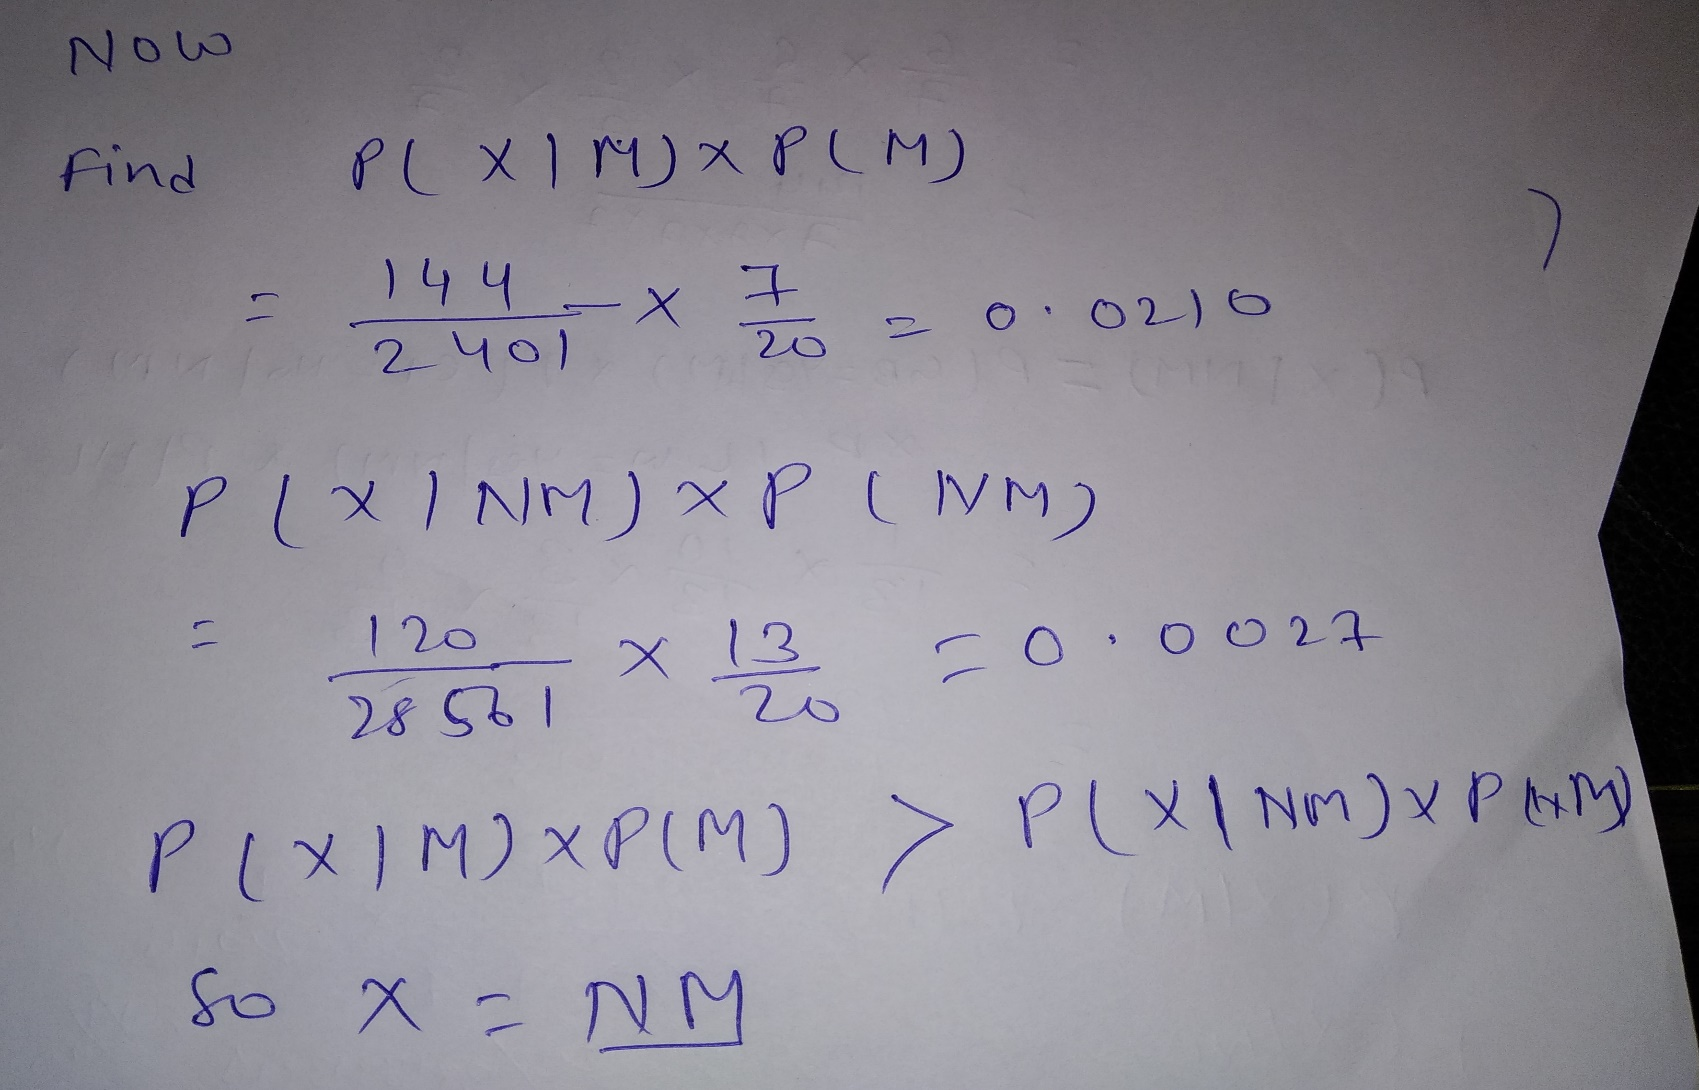 Now
Find P(X|M) x P(M)
= 144/2401 x 7/20 = 0.0210
P(X|NM) x P(NM)
= 120/28561 x 13/20 = 0.0027
P(X|M) x P(M) > P(X|NM) x P(NM)
So X = NM